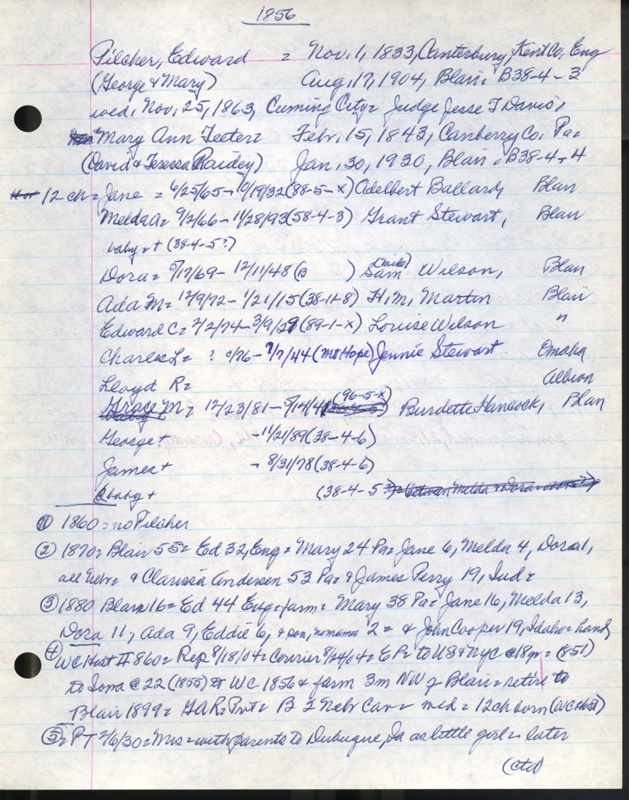 1856
Pilcher, Edward = Nov. 1, 1833, Canterbury, Kent Co, Eng
(George & Mary) Aug, 17, 1904, Blair, B38-4-3
wed, Nov, 25, 1863, Cuming City = Judge Jesse T Davis,
Mary Ann Teeter = Febr, 15, 1843, Canberry Co, Pa =
(David & Teressa Raidey) Jan, 30, 1930, Blair, B38-4-4
12 ch = Jane = 6/25/65 - 10/19/32 (88-5-x) Adelbert Ballard, Blair
Melda A = 9/2/66 - 11/28/93 (58-4-3) Grant Stewart, Blair
baby + (38-4-5?)
Dora = 5/17/69 - 12/11/48 (B ) Sam Wilson, Blair
Ada M = 12/9/72 - 1/21/15 (38-11-8) H, M, Martin Blair
Edward C = 2/2/74 - 3/9/29 (89-1-x) Louise Wilson "
Charles L = ? 0/76 - 7/7/44 (Mt Hope) Jennie Stewart Omaha
Lloyd R = Albion
Grace M = 12/23/81 - (96-5-x) Burdette Hancock, Blair
George + - 11/21/89 (38-4-6)
James + - 8/31/78 (38-4-6)
baby + (38-4-5
① 1860 = no Pilcher
② 1870 = Blair 55 = Ed 32, Eng = Mary 24 Pa = Jane 6, Melda 4, Dora 1,
all Nebr = & Clarissa Andersen 53 Pa = & James Perry 19, Ind =
③ 1880 Blair 16 = Ed 44 Eng = farm = Mary 38 Pa = Jane 16, Melda 13,
Dora 11, Ada 9, Eddie 6, & son, no name 2 = & John Cooper 19, Idaho = hand
④ WC Hist II 860 = Rep 8/18/04 = Courier 8/24/04 = E P = to US & NYC @ 18 yr = (1851)
to Iowa @ 22 (1855) WC 1856 & farm 3m NW of Blair = retire to
Blair 1899 = GAR = Pvt = B 2 Nebr Cav = med = 12 ch born (WC Hist)
⑤ = PT 2/6/30 = Mrs = with parents to Dubuque, Ia as little girl = later
(ctd)